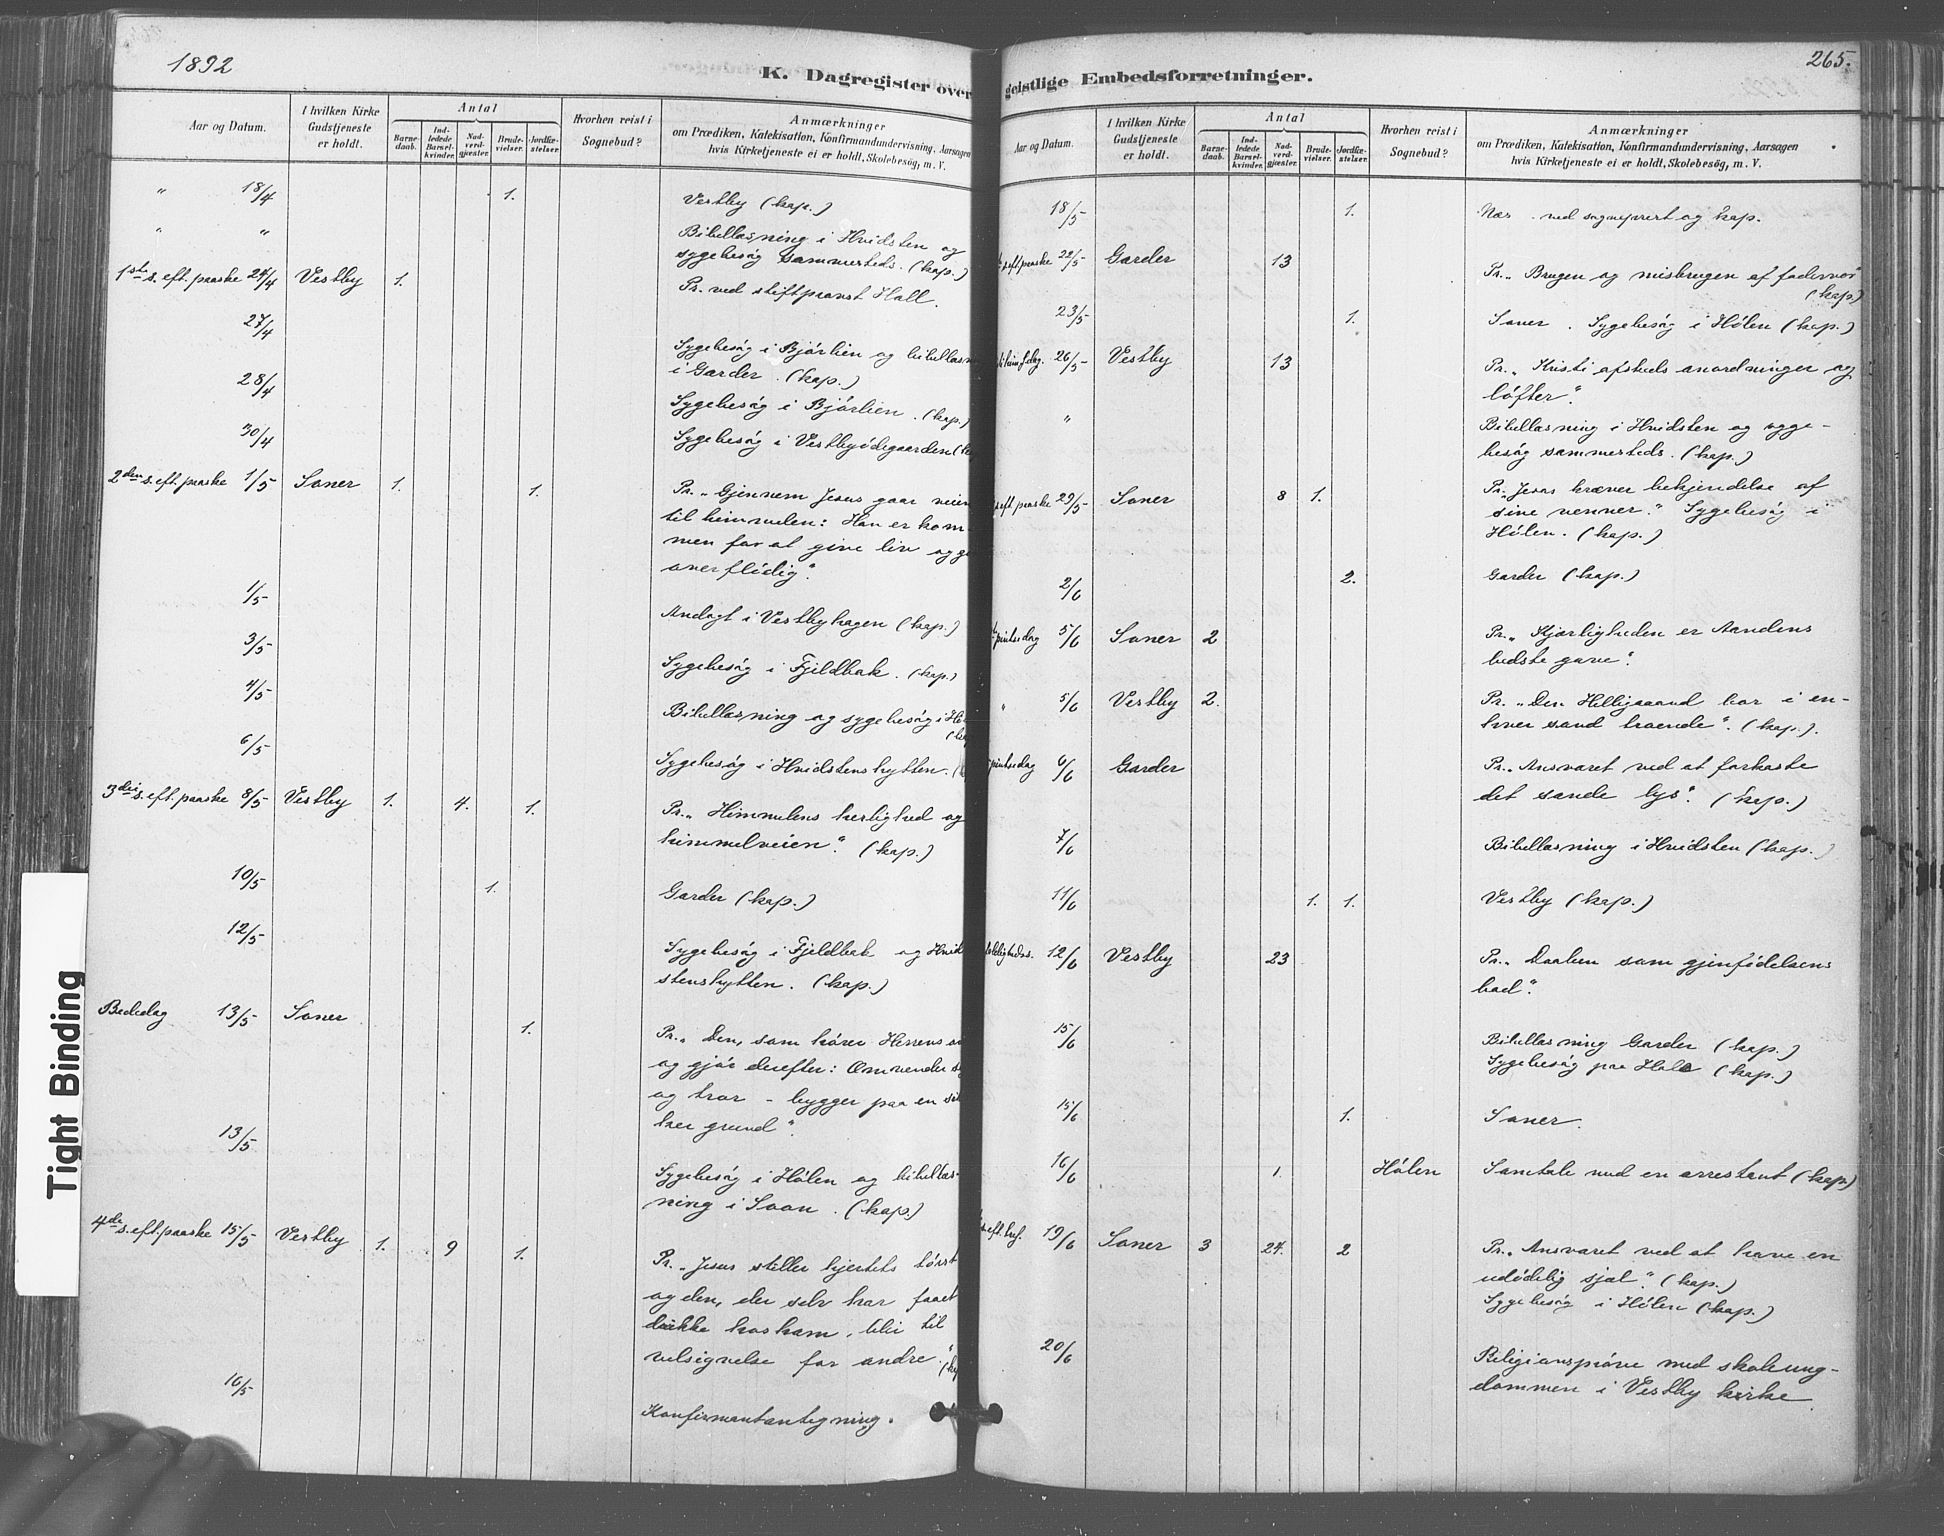 1892
K. Dagregister over
Aar og Datum.
I hvilken Kirke Gudstjeneste er holdt.
Antal
Barnedaab.
Indledede Barselkvinder.
Nadverdgjæster.
Brudevielser.
Jordfæstelser.
Hvorhen reist i Sognebud?
Anmærkninger
om Prædiken, Katekisation, Konfirmandundervisning, Aarsagen
hvis Kirketjeneste ei er holdt, Skolebesøg, m. V.
" 18/4 1. Vestby (kap.)
" " Bibellæsning i Hvidsten og
sygebesøg sammesteds. (kap.)
1ste s. eft. paaske 24/4 Vestby 1. Pr. ved stiftprovst Hall.
27/4 Sygebesøg i Bjørlien og bibellæsn
i Garder. (kap.)
28/4 Sygebesøg i Bjørlien. (kap.)
30/4 Sygebesøg i Vestbyødegaarden (
2den s. eft. paaske 1/5 Soner 1. 1. Pr. „Gjennem Jesus gaar veien
til himmelen: Han er kom-
men for at give liv og
overflødig".
1/5 Andagt i Vestbyhagen (kap.)
3/5 Sygebesøg i Fjeldbak. (kap.)
4/5 Bibellæsning og sygebesøg i
6/5 Sygebesøg i Hvidstenshytten. (
3die s. eft. paaske 8/5 Vestby 1. 4. 1. Pr. „Himmelens herlighed og
himmelveien". (kap.)
10/5 1. Garder (kap.)
12/5 Sygebesøg i Fjeldbak og Hvid
stenshytten. (kap.)
Bededag 13/5 Soner 1. Pr. „Den, som hører Herrens
og gjør derefter: Omvender
og tror – bygger paa en sik
ker grund".
13/5 Sygebesøg i Hølen og bibellæs-
ning i Soon. (kap.)
4de s. eft. paaske 15/5 Vestby 1. 9 1. Pr. „Jesus stiller hjertets tørst
og den, der selv har faaet
drikke hos ham, blir til
velsignelse for andre."
16/5 Konfirmantantegning.
265.
geistlige Embedsforretninger.
Aar og Datum.
I hvilken Kirke Gudstjeneste er holdt.
Antal
Barnedaab.
Indledede Barselkvinder.
Nadverdgjæster.
Brudevielser.
Jordfæstelser.
Hvorhen reist i Sognebud?
Anmærkninger
om Prædiken, Katekisation, Konfirmandundervisning, Aarsagen
hvis Kirketjeneste ei er holdt, Skolebesøg, m. V.
18/5 1. Næs . ved sogneprest og kap.
s. eft. paaske 22/5 Garder 13 Pr. „Brugen og misbrugen af fadervor"
(kap.)
23/5 1. Soner. Sygebesøg i Hølen (kap.)
26/5 Vestby 13 Pr. „Kristi afskeds anordninger og
løfter".
" Bibellæsning i Hvidsten og syge-
besøg sammesteds. (kap.)
s. eft. paaske 29/5 Soner 8 1. Pr. „Jesus kræver bekjendelse af
sine venner." Sygebesøg i
Hølen. (kap.)
2/6 2. Garder (kap.)
pintsedag 5/6 Soner 2 Pr. „Kjærligheden er Aandens
bedste gave".
" 5/6 Vestby 2. Pr. „Den Helligaand bor i en-
hver sand troende". (kap.).
pintsedag 6/6 Garder Pr. „Ansvaret ved at forkaste
det sande lys". (kap.)
7/6 Bibellæsning i Hvidsten (kap.)
11/6 1. 1. Vestby (kap.)
12/6 Vestby 23 Pr. „Daaben som gjenfødelsens
bad".
15/6 Bibellæsning Garder (kap.)
Sygebesøg paa Hole (kap.)
15/6 1. Soner.
16/6 1. Hølen Samtale med en arrestant (kap.)
s. eft. tref. 19/6 Soner 3 24. 2 Pr. „Ansvaret ved at have en
udødelig sjæl". (kap.)
Sygebesøg i Hølen (kap.)
20/6 Religionsprøve med skoleung-
dommen i Vestby kirke.
Tight Binding